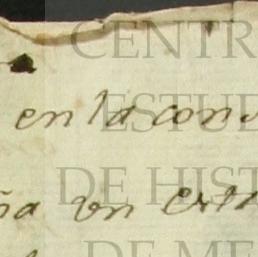 CENTR
en la con
ESTU
DE HIST
ña un
DE ME